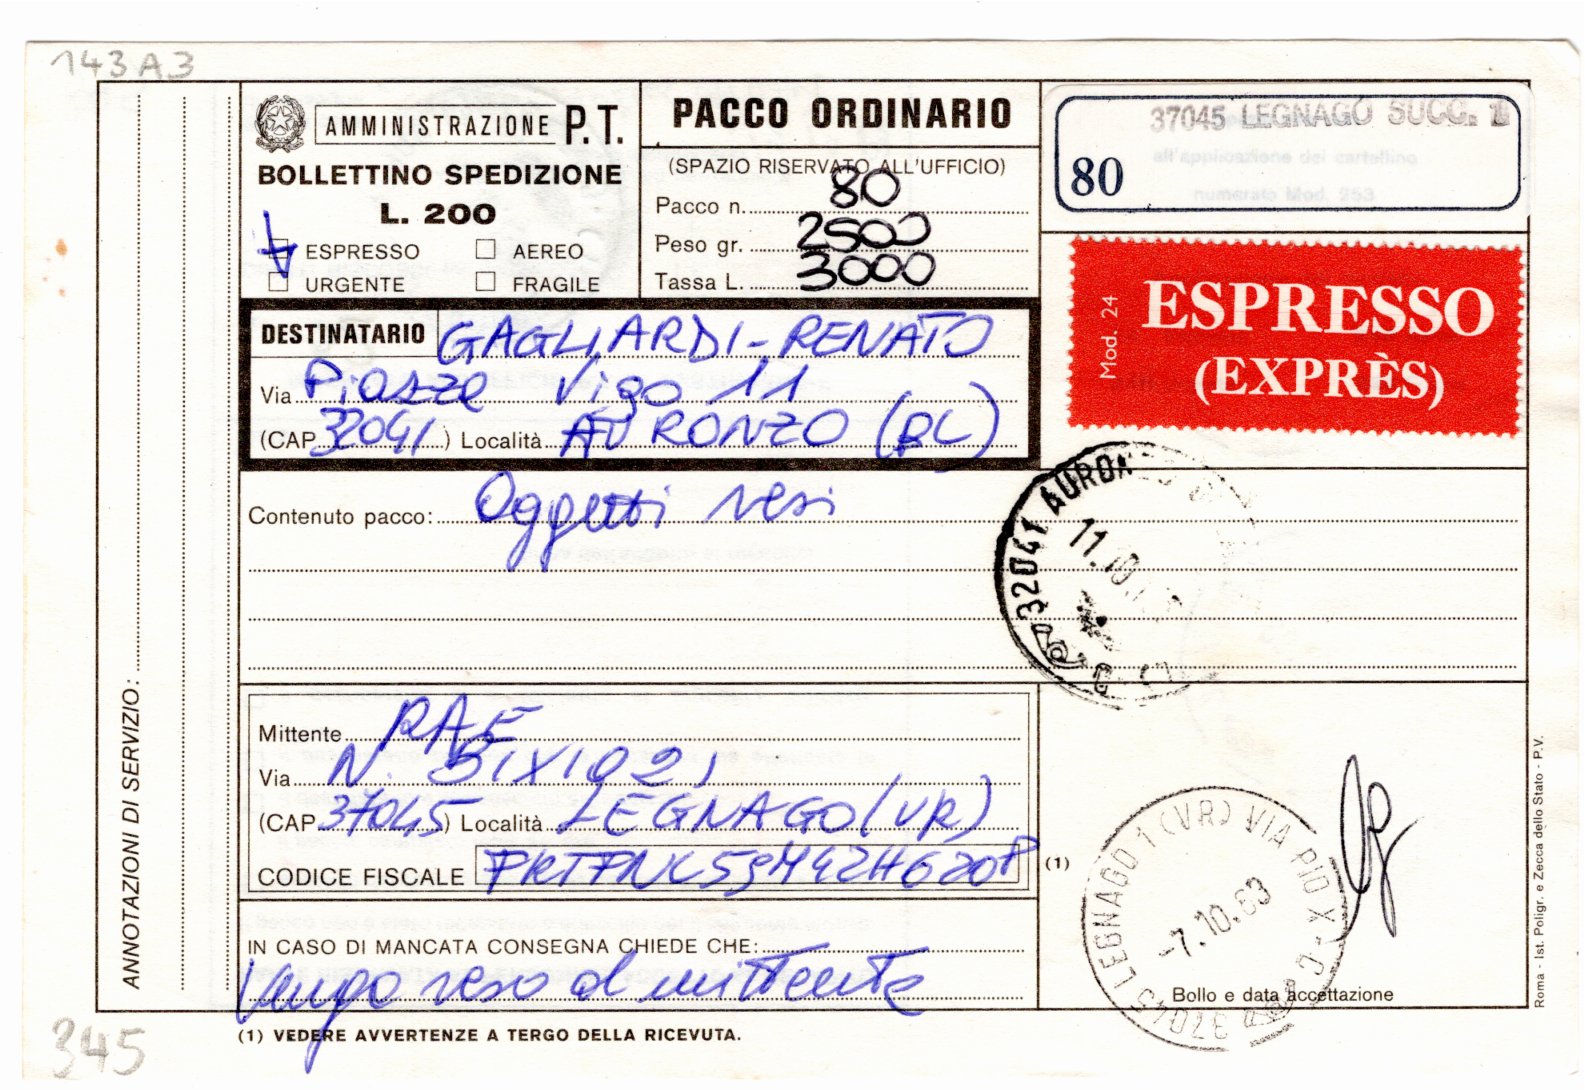 143A3
AMMINISTRAZIONE P.T.
BOLLETTINO SPEDIZIONE
L. 200
ESPRESSO AEREO
URGENTE FRAGILE
PACCO ORDINARIO
(SPAZIO RISERVATO ALL'UFFICIO)
Pacco n. 80
Peso gr. 2500
Tassa L. 3000
37045 LEGNAGO SUCC. 1
80
Mod. 24
ESPRESSO
(EXPRÈS)
DESTINATARIO GAGLIARDI-RENATO
Via Piazza Vigo 11
(CAP 32041) Località AURONZO (BL)
Contenuto pacco: Oggetti resi
32041 AURONZO
11.10.
Mittente RAE
Via N. BIXIO 21
(CAP 37045) Località LEGNAGO (VR)
CODICE FISCALE
(1)
IN CASO DI MANCATA CONSEGNA CHIEDE CHE:
Venga reso al mittente
37045 LEGNAGO 1 (VR) VIA PIO X
-7.10.83
Bollo e data accettazione
(1) VEDERE AVVERTENZE A TERGO DELLA RICEVUTA.
ANNOTAZIONI DI SERVIZIO:
Roma - Ist. Poligr. e Zecca dello Stato - P.V.
345